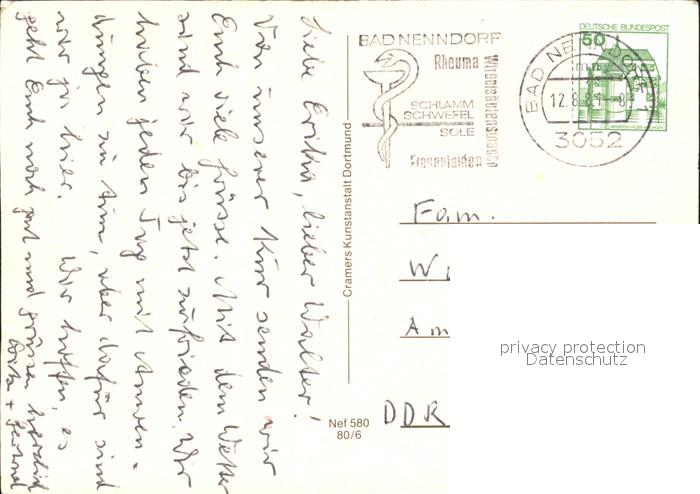 Liebe Erika, lieber Walter!
Von unserer Kur senden wir
Euch viele Grüsse. Mit dem Wetter
sind wir bis jetzt zufrieden. Wir
haben jeden Tag mit Anwen-
dungen zu tun, aber dafür sind
wir ja hier. Wir hoffen, es
geht Euch noch gut und grüssen herzlich
Cramers Kunstanstalt Dortmund
Nef 580
80/6
BAD NENNDORF
Rheuma
Wirbelsäulenschäden
SCHLAMM
SCHWEFEL
SOLE
Frauenleiden
DEUTSCHE BUNDESPOST
50
BAD NENNDORF 1
12.8.81-8
3052
Fam.
W
Am
DDR
privacy protection
Datenschutz